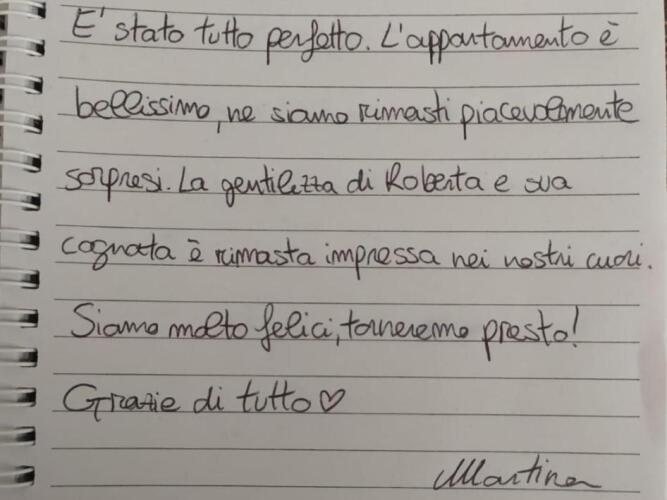 E' stato tutto perfetto. L'appartamento è
bellissimo, ne siamo rimasti piacevolmente
sorpresi. La gentilezza di Roberta e sua
cognata è rimasta impressa nei nostri cuori.
Siamo molto felici, torneremo presto!
Grazie di tutto ♡
Martina